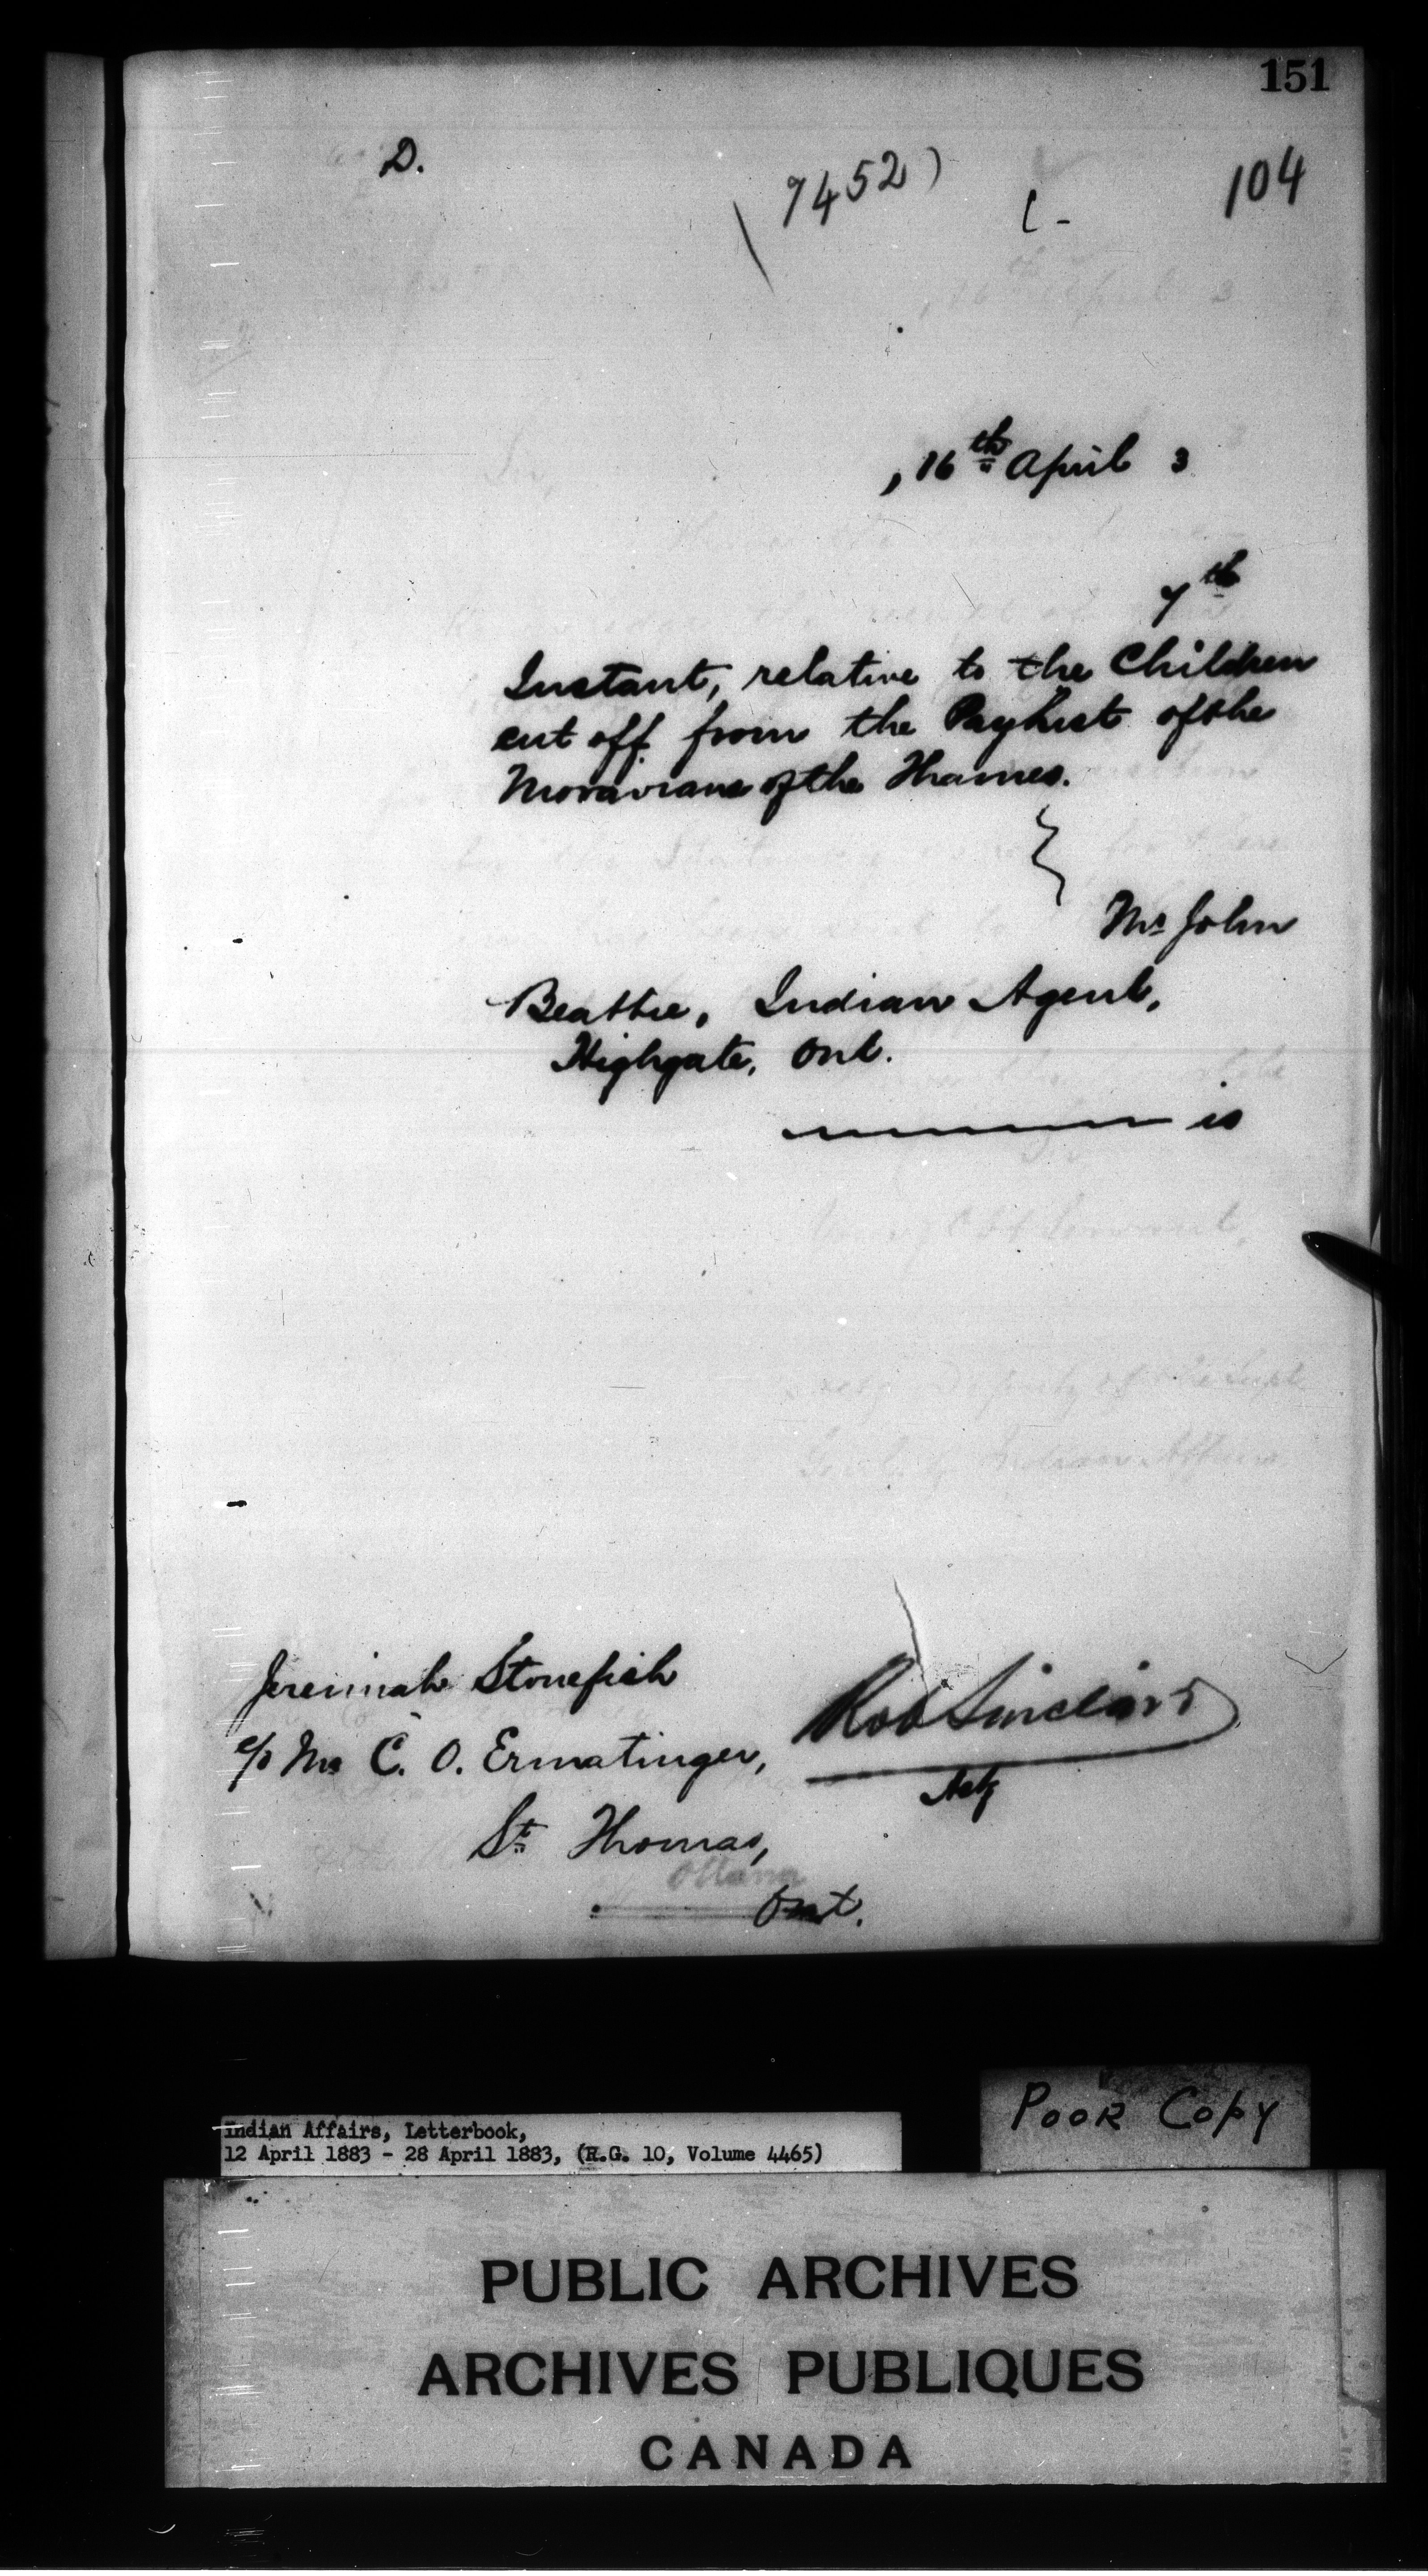 151
D.
(7452)
104
, 16th April 3
7th
Instant, relative to the Children
cut off from the Paylist of the
Moravians of the Thames.
Mr John
Beattie, Indian Agent,
Highgate, Ont.
is
Jeremiah Stonefish
c/o Mr C. O. Ermatinger,
St Thomas,
Ottawa
Ont.
Rob Sinclair
Actg
Poor Copy
Indian Affairs, Letterbook,
12 April 1883 - 28 April 1883, (R.G. 10, Volume 4465)
PUBLIC ARCHIVES
ARCHIVES PUBLIQUES
CANADA